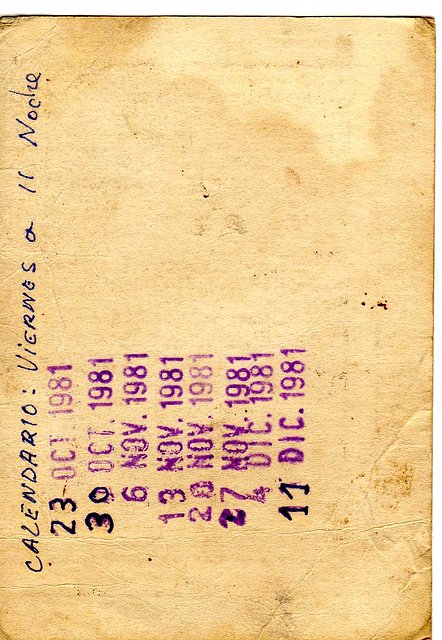 CALENDARIO: VIERNES a 11 Noche
23 OCT 1981
30 OCT. 1981
6 NOV. 1981
13 NOV. 1981
20 NOV 1981
27 NOV 1981
4 DIC. 1981
11 DIC. 1981